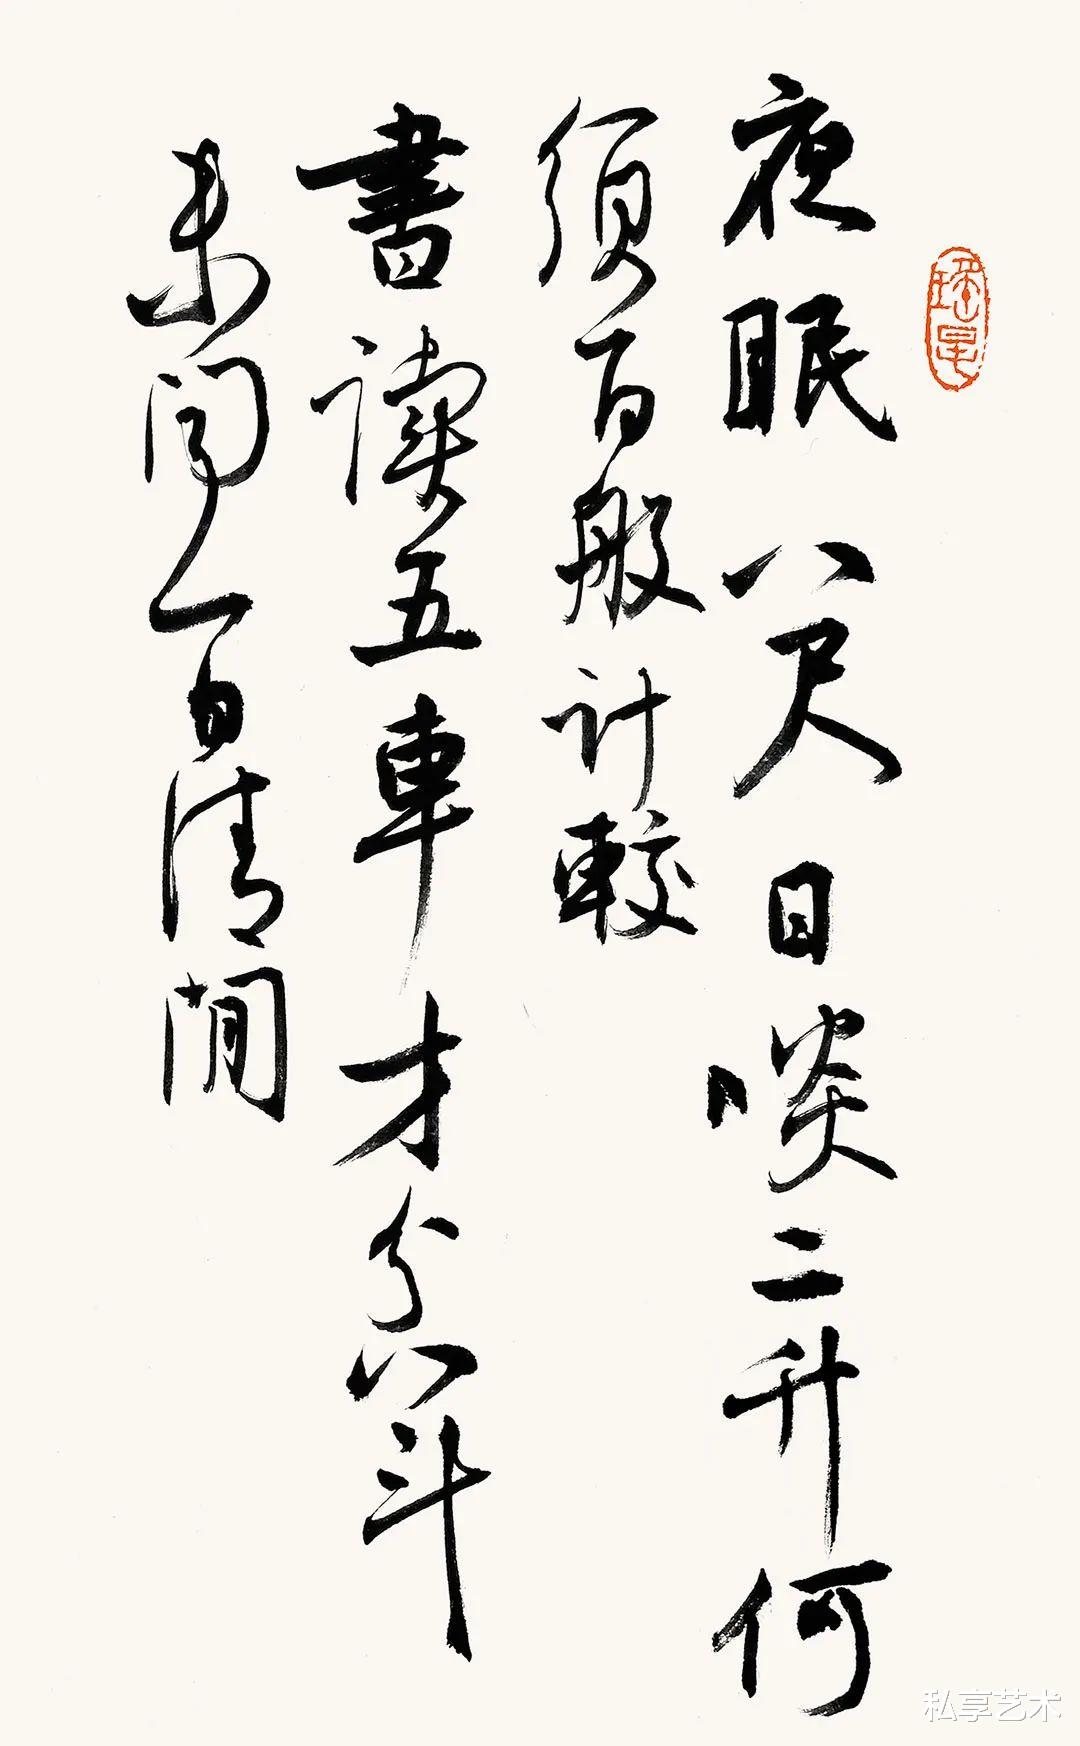 夜眠八尺日啖二升何
须百般计較
書读五車才分八斗
未闻一日清閒
私享艺术